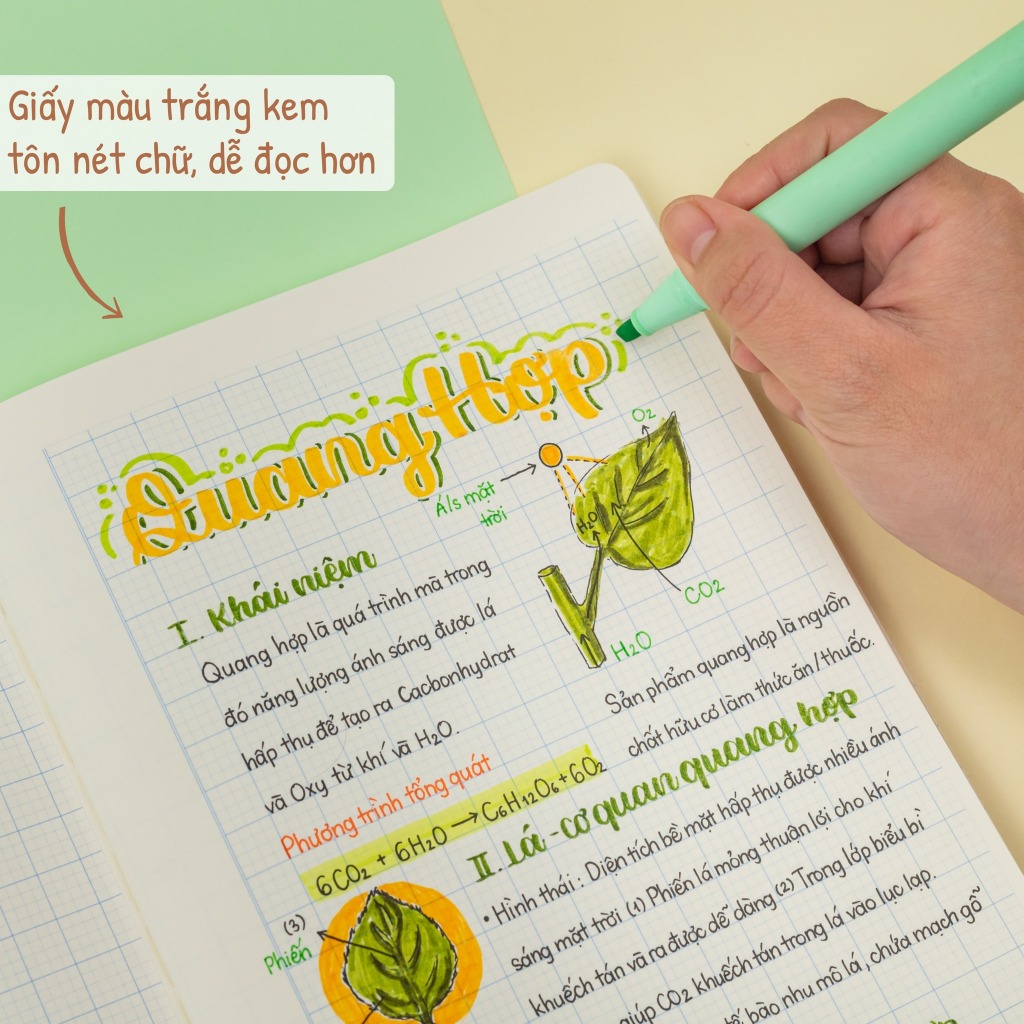 Giấy màu trắng kem
tôn nét chữ, dễ đọc hơn
Quang Hợp
I. Khái niệm
Quang hợp là quá trình mà trong
đó năng lượng ánh sáng được lá
hấp thụ để tạo ra Cacbonhydrat
và Oxy từ khí và H2O.
Phương trình tổng quát
6CO2 + 6H2O → C6H12O6 + 6O2
(3)
Phiến
O2
A/s mặt
trời
H2O
CO2
H2O
Sản phẩm quang hợp là nguồn
chất hữu cơ làm thức ăn/thuốc.
II. Lá - cơ quan quang hợp
• Hình thái : Diện tích bề mặt hấp thụ được nhiều ánh
sáng mặt trời (1) Phiến lá mỏng thuận lợi cho khí
khuếch tán và ra được dễ dàng (2) Trong lớp biểu bì
giúp CO2 khuếch tán trong lá vào lục lạp.
tế bào như mô lá, chứa mạch gỗ